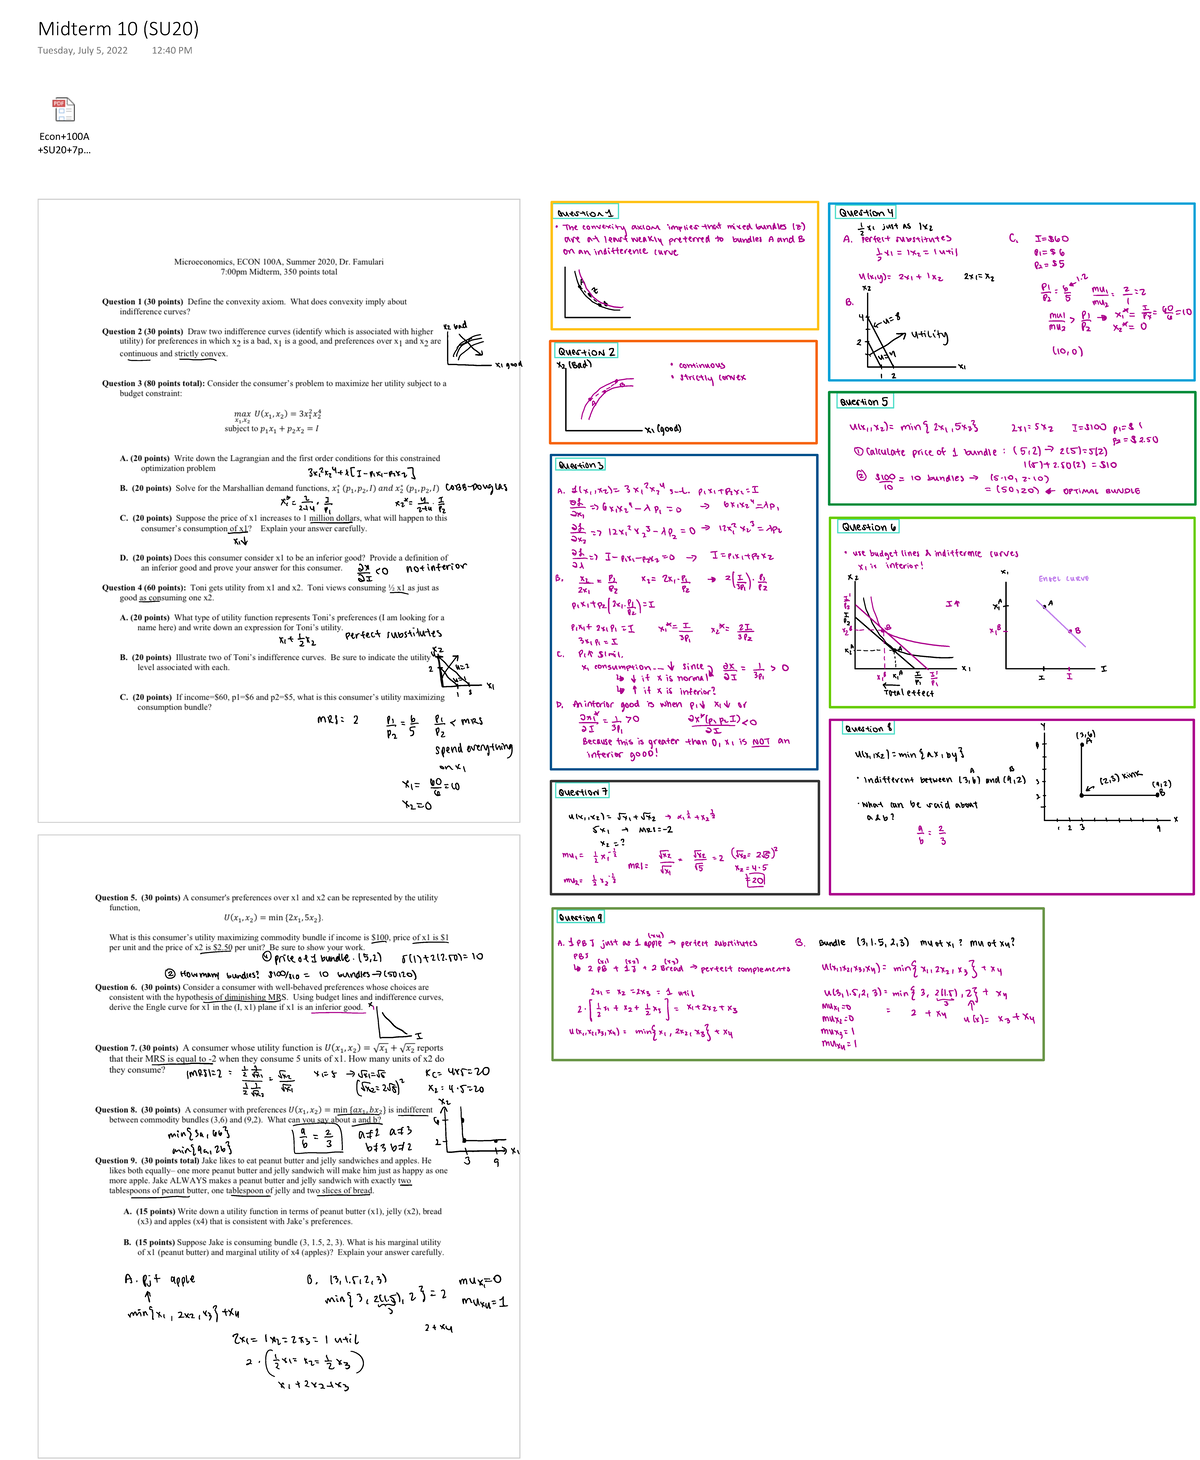 Midterm 10 (SU20)
Tuesday, July 5, 2022 12:40 PM
PDF
Econ+100A
+SU20+7p...
Microeconomics, ECON 100A, Summer 2020, Dr. Famulari
7:00pm Midterm, 350 points total
Question 1 (30 points) Define the convexity axiom. What does convexity imply about
indifference curves?
Question 2 (30 points) Draw two indifference curves (identify which is associated with higher
utility) for preferences in which x2 is a bad, x1 is a good, and preferences over x1 and x2 are
continuous and strictly convex.
x2 bad
x1 good
Question 3 (80 points total): Consider the consumer's problem to maximize her utility subject to a
budget constraint:
max U(x1, x2) = 3x1²x2⁴
x1,x2
subject to p1x1 + p2x2 = I
A. (20 points) Write down the Lagrangian and the first order conditions for this constrained
optimization problem
3x1²x2⁴ + λ[I - P1x1 - P2x2]
B. (20 points) Solve for the Marshallian demand functions, x1* (p1, p2, I) and x2* (p1, p2, I) Cobb-Douglas
x1* = 2/2+4 · I/P1 x2* = 4/2+4 · I/P2
C. (20 points) Suppose the price of x1 increases to 1 million dollars, what will happen to this
consumer's consumption of x1? Explain your answer carefully.
x1↓
D. (20 points) Does this consumer consider x1 to be an inferior good? Provide a definition of
an inferior good and prove your answer for this consumer. ∂x/∂I < 0 not inferior
Question 4 (60 points): Toni gets utility from x1 and x2. Toni views consuming ½ x1 as just as
good as consuming one x2.
A. (20 points) What type of utility function represents Toni's preferences (I am looking for a
name here) and write down an expression for Toni's utility.
x1 + ½x2 perfect substitutes
B. (20 points) Illustrate two of Toni's indifference curves. Be sure to indicate the utility
level associated with each.
C. (20 points) If income=$60, p1=$6 and p2=$5, what is this consumer's utility maximizing
consumption bundle?
MRS = 2 P1/P2 = 6/5 P1/P2 < MRS
spend everything
on x1
x1 = 60/6 = 10
x2 = 0
Question 5. (30 points) A consumer's preferences over x1 and x2 can be represented by the utility
function,
U(x1, x2) = min {2x1, 5x2}.
What is this consumer's utility maximizing commodity bundle if income is $100, price of x1 is $1
per unit and the price of x2 is $2.50 per unit? Be sure to show your work.
① price of 1 bundle · (5,2) 5(1)+2(2.50)= 10
② How many bundles? $100/$10 = 10 bundles → (50,20)
Question 6. (30 points) Consider a consumer with well-behaved preferences whose choices are
consistent with the hypothesis of diminishing MRS. Using budget lines and indifference curves,
derive the Engle curve for x1 in the (I, x1) plane if x1 is an inferior good.
x1
I
Question 7. (30 points) A consumer whose utility function is U(x1, x2) = √x1 + √x2 reports
that their MRS is equal to -2 when they consume 5 units of x1. How many units of x2 do
they consume?
|MRS|=2 = ½ 1/√x1 / ½ 1/√x2 = √x2/√x1 x1=5 → √x1=√5 (√x2=2√5)² x2 = 4·5=20
Question 8. (30 points) A consumer with preferences U(x1, x2) = min {ax1, bx2} is indifferent
between commodity bundles (3,6) and (9,2). What can you say about a and b?
min{3a, 6b}
min{9a, 2b}
a/b = 2/3 a≠2 a≠3
b≠3 b≠2
Question 9. (30 points total) Jake likes to eat peanut butter and jelly sandwiches and apples. He
likes both equally– one more peanut butter and jelly sandwich will make him just as happy as one
more apple. Jake ALWAYS makes a peanut butter and jelly sandwich with exactly two
tablespoons of peanut butter, one tablespoon of jelly and two slices of bread.
A. (15 points) Write down a utility function in terms of peanut butter (x1), jelly (x2), bread
(x3) and apples (x4) that is consistent with Jake's preferences.
B. (15 points) Suppose Jake is consuming bundle (3, 1.5, 2, 3). What is his marginal utility
of x1 (peanut butter) and marginal utility of x4 (apples)? Explain your answer carefully.
A. PJ + apple
min{x1, 2x2, x3} + x4
B. (3, 1.5, 2, 3)
min{3, 2(1.5), 2} = 2
3
mux1=0
mux4=1
2 + x4
2x1 = 1x2 = 2x3 = 1 util
2 · (½x1 = x2 = ½x3)
x1 + 2x2 + x3
Question 1
• The convexity axiom implies that mixed bundles (z)
are at least weakly preferred to bundles A and B
on an indifference curve
Question 2
x2 (Bad)
• continuous
• strictly convex
x1 (good)
Question 3
A. L(x1,x2) = 3x1²x2⁴ s.t. P1x1+P2x2=I
∂L/∂x1 => 6x1x2⁴ - λP1 = 0 → 6x1x2⁴ = λP1
∂L/∂x2 => 12x1²x2³ - λP2 = 0 → 12x1²x2³ = λP2
∂L/∂λ => I - P1x1 - P2x2 = 0 → I = P1x1 + P2x2
B. x2/2x1 = P1/P2 x2 = 2x1·P1/P2 → 2(I/3P1)·P1/P2
P1x1 + P2[2x1·P1/P2] = I
P1x1 + 2x1P1 = I x1* = I/3P1 x2* = 2I/3P2
3x1P1 = I
C. P1↑ $1mil.
x1 consumption... ↓ since ∂x/∂I = 1/3P1 > 0
↳ ↓ if x is normal
↳ ↑ if x is inferior?
D. An inferior good is when P1↓ x1↓ or
∂x1*/∂I = 1/3P1 > 0 ∂x*(P1,P2,I)/∂I < 0
Because this is greater than 0, x1 is NOT an
inferior good!
Question 7
u(x1,x2) = √x1 + √x2 → x1^½ + x2^½
5x1 → MRS=-2
x2 = ?
mu1 = ½x1^-½
mu2 = ½x2^-½
MRS = √x2/√x1 = √x2/√5 = 2 (√x2 = 2√5)²
x2 = 4·5
= 20
Question 4
½x1 just as 1x2
A. perfect substitutes
½x1 = 1x2 = 1 util
u(x,y) = 2x1 + 1x2 2x1 = x2
B.
x2
4
2
u=8
u=4
→ utility
1 2
x1
C. I=$60
P1=$6
P2=$5
P1/P2 = 6/5 1.2 mu1/mu2 = 2/1 = 2
mu1/mu2 > P1/P2 → x1* = I/Px = 60/6 = 10
x2* = 0
(10,0)
Question 5
u(x1,x2) = min{2x1, 5x2} 2x1 = 5x2 I=$100 P1=$1
P2=$2.50
① Calculate price of 1 bundle : (5,2) → 2(5)=5(2)
1(5)+2.50(2) = $10
② $100/10 = 10 bundles → (5·10, 2·10)
= (50,20) ← OPTIMAL BUNDLE
Question 6
• use budget lines & indifference curves
x1 is inferior!
x2
I↑
x1
Total effect
x1
Engel Curve
A
B
I
I'
I
Question 8
u(x1,x2) = min{ax, by}
• Indifferent between (3,6) and (9,2)
A B
• What can be said about
a & b?
a/b = 2/3
Y
(3,6)
A
(2,3) Kink
(9,2)
B
X
1 2 3 9
Question 9
A. 1 PBJ just as 1 apple → perfect substitutes
(x4)
PBJ
↳ 2 PB + 1J + 2 Bread → perfect complements
(x1) (x2) (x3)
2x1 = x2 = 2x3 = 1 util
2·[½x1 + x2 + ½x3] = x1 + 2x2 + x3
u(x1,x2,x3,x4) = min{x1, 2x2, x3} + x4
B. Bundle (3, 1.5, 2, 3) mu of x1? mu of x4?
u(x1,x2,x3,x4) = min{x1, 2x2, x3} + x4
u(3, 1.5, 2, 3) = min{3, 2(1.5), 2} + x4
3
mux1=0
mux2=0
mux3=1
mux4=1
= 2 + x4 u(x) = x3 + x4